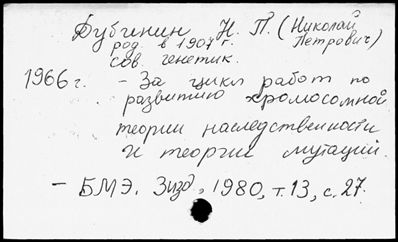 Дубинин Н. П. (Николай
Петрович)
род. в 1907 г.
сов. генетик.
1966 г. - За цикл работ по
развитию хромосомной
теории наследственности
и теории мутаций.
- БМЭ. 3изд, 1980, т.13, с.27.